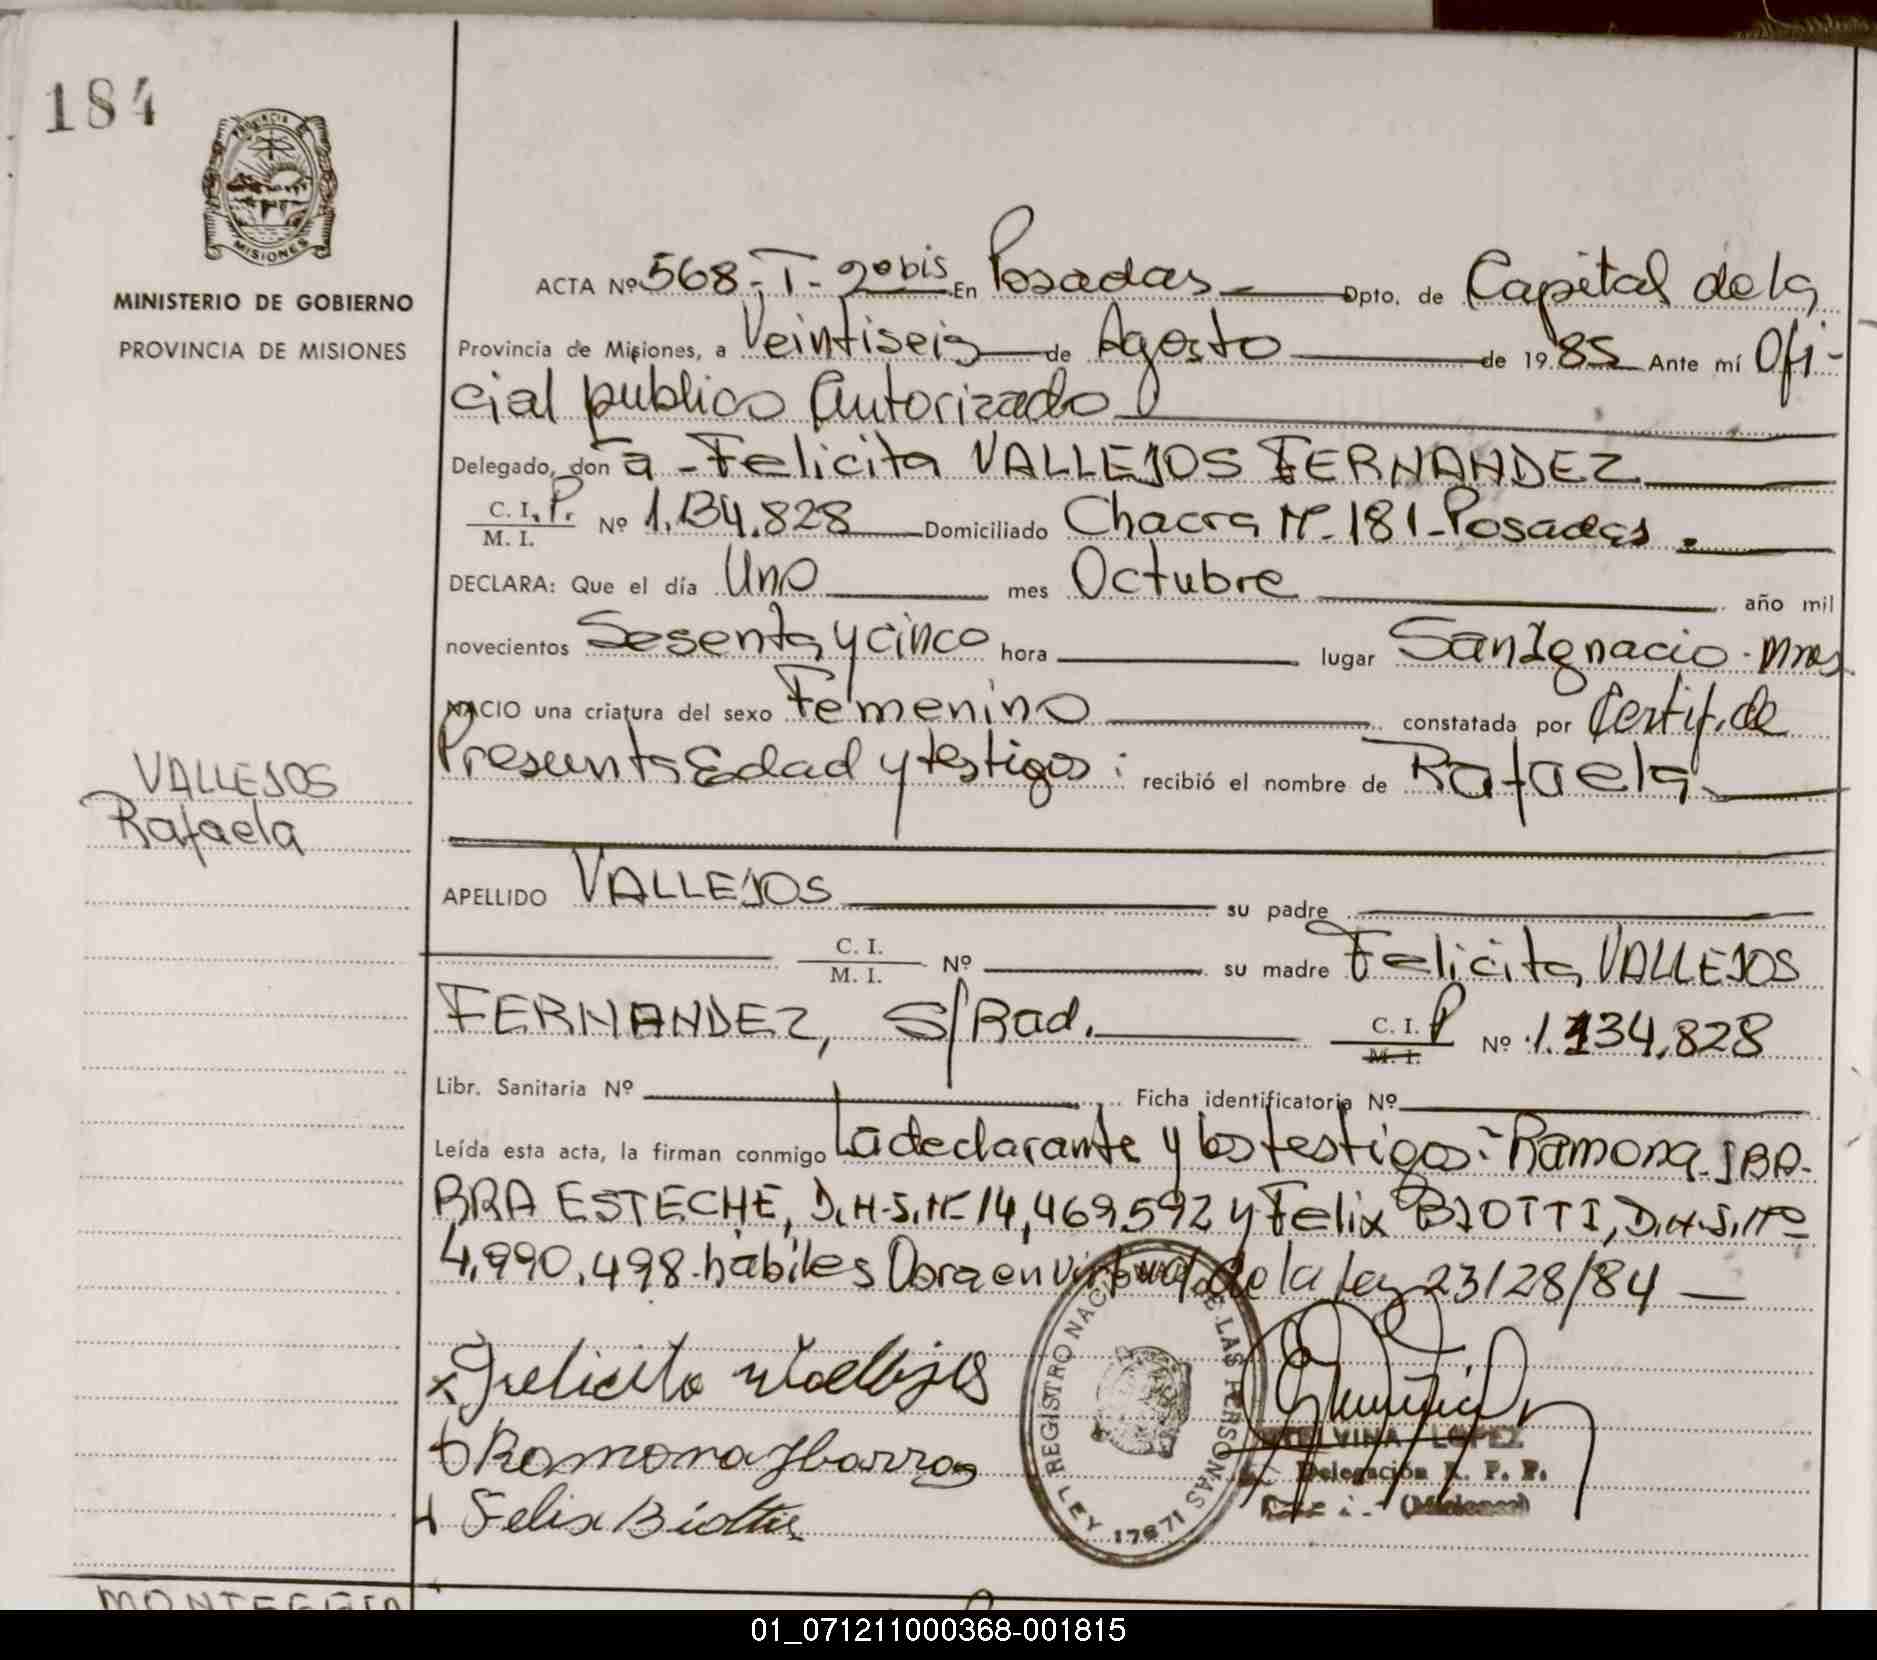 184
PROVINCIA DE
MISIONES
MINISTERIO DE GOBIERNO
PROVINCIA DE MISIONES
ACTA Nº 568-T-2º bis En Posadas Dpto. de Capital de la
Provincia de Misiones, a Veintiseis de Agosto de 1985 Ante mí Ofi-
cial publico Autorizado
Delegado, don a - Felicita VALLEJOS FERNANDEZ
C. I. P. Nº 1.134.828 Domiciliado Chacra Nº 181-Posadas.
M. I.
DECLARA: Que el día Uno mes Octubre año mil
novecientos Sesenta y cinco hora lugar San Ignacio - Mnes
NACIO una criatura del sexo Femenino constatada por Certif. de
Presunta Edad y testigos: recibió el nombre de Rafaela
VALLEJOS
Rafaela
APELLIDO VALLEJOS su padre
C. I.
M. I. Nº su madre Felicita VALLEJOS
FERNANDEZ, S/Rad. C. I. P Nº 1.134,828
M. I.
Libr. Sanitaria Nº Ficha identificatoria Nº
Leída esta acta, la firman conmigo La declarante y los testigos: Ramona IBA-
RRA ESTECHE, D.N.I. Nº 14,469.592 y Felix BIOTTI, D.N.I. Nº
4,990,498. habiles Obra en virtud de la ley 23128/84
x Felicita Vallejos
Ramona Ibarra
Felix Biotti
REGISTRO NACIONAL DE LAS PERSONAS
LEY 17671
ETELVINA LOPEZ
Delegación R. P. P.
(Misiones)
01_071211000368-001815